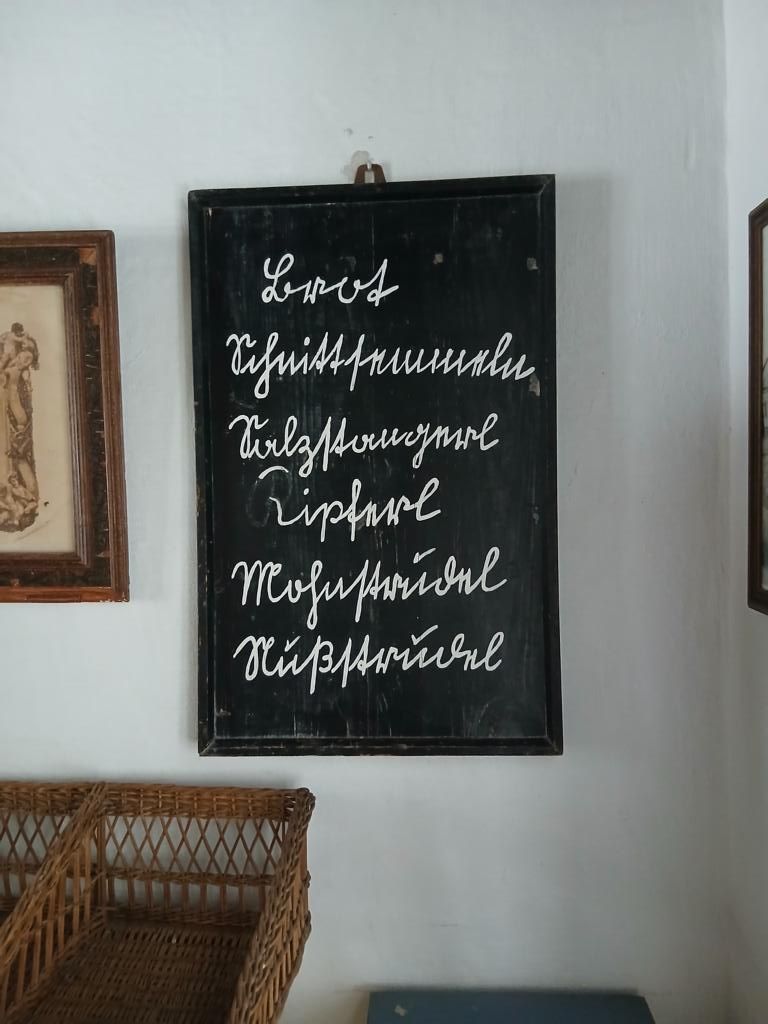 Brot
Schnittsemmeln
Salzstangerl
Kipferl
Mohnstrudel
Nußstrudel